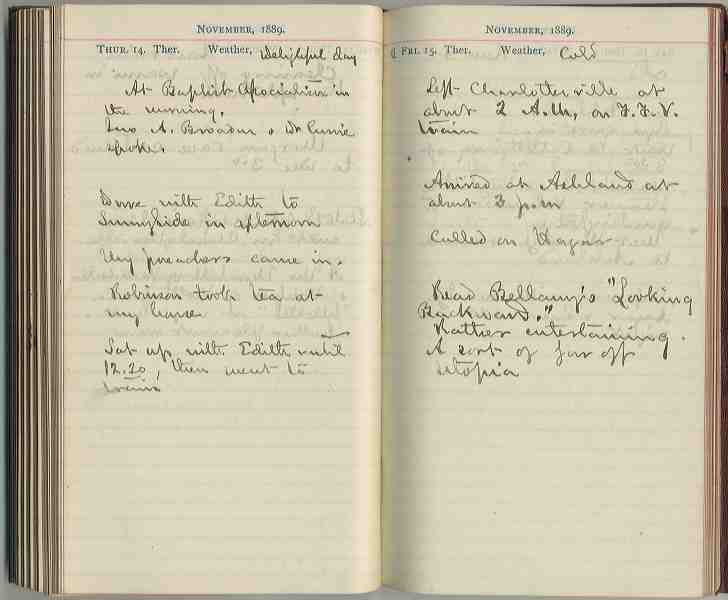 NOVEMBER, 1889.
THUR. 14. Ther. Weather, Delightful day
At Baptist Association in
the morning.
Jno A. Broadus & Dr Currie
spoke.
Drove with Edith to
Sunnyside in afternoon
My preachers came in.
Robinson took tea at
my house
Sat up with Edith until
12.20, then went to
train
NOVEMBER, 1889.
FRI. 15. Ther. Weather, Cold
Left Charlottesville at
about 2 A.M, on F.F.V.
train
Arrived at Ashland at
about 3 p.m
Called on
Read Bellamy's "Looking
Backward."
Rather entertaining.
A sort of far off
utopia